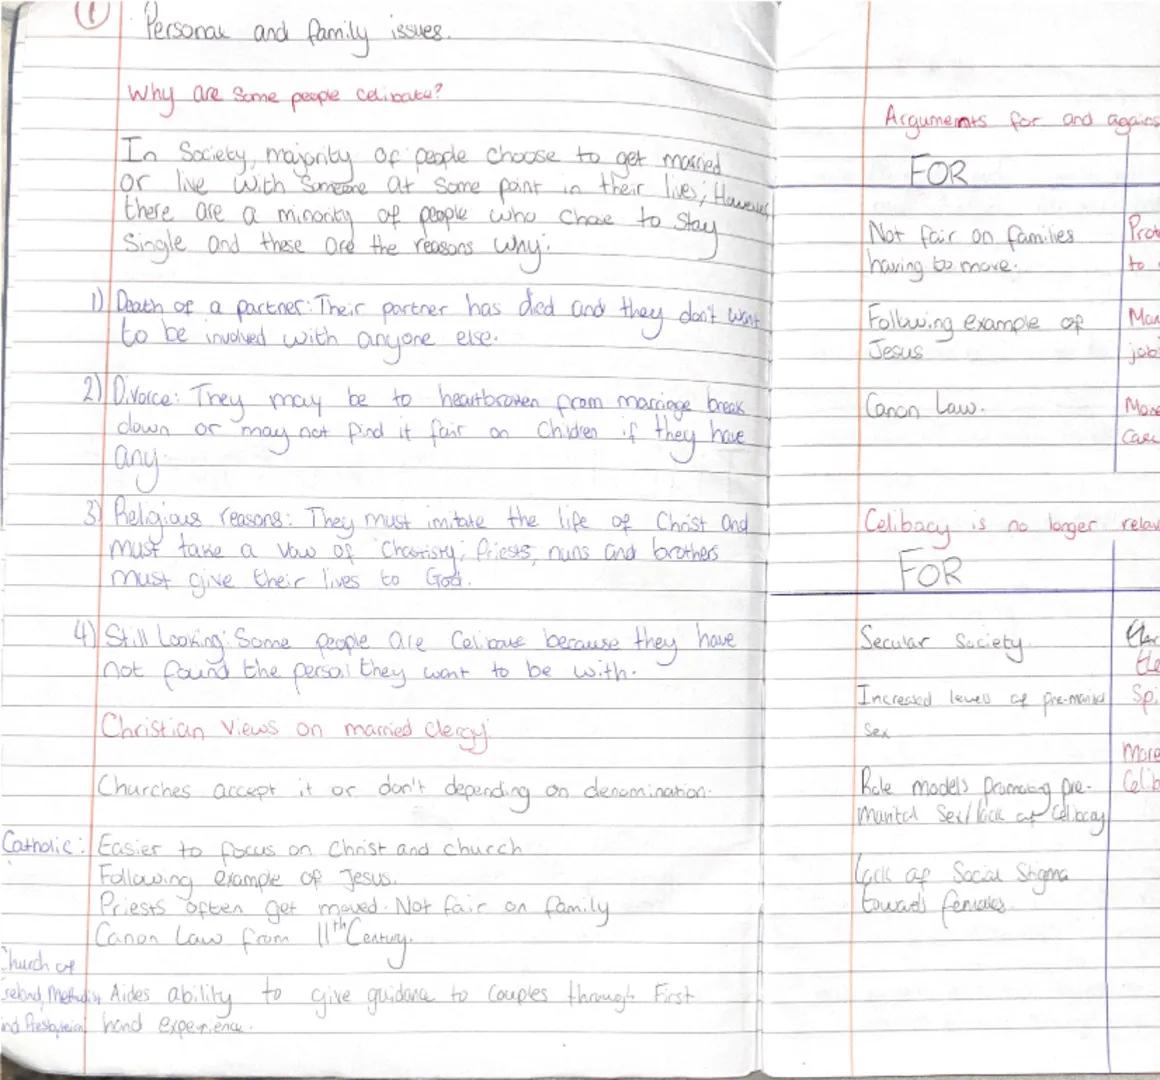 1
Personal and family issues.
Why are some people celibate?
In Society, majority of people choose to get married
or live with Someone at some point in their lives; However
there are a minority of people who chose to stay
Single and these are the reasons why:
1) Death of a partner: Their partner has died and they don't want
to be involved with anyone else.
2) Divorce: They may be to heartbroken from marriage break
down or may not find it fair on Children if they have
any.
3) Religious reasons: They must imitate the life of Christ and
must take a vow of Chastisty; Priests, nuns and brothers
must give their lives to God.
4) Still Looking: Some people are Celibate because they have
not found the person they want to be with.
Christian Views on married Clergy.
Churches accept it or don't depending on denomination.
Catholic: Easier to focus on Christ and church
Following example of Jesus.
Priests often get moved. Not fair on family
Canon Law from 11th Century.
Church of
Ireland, Methodist Aides ability to give guidance to Couples through First
and Presbyterian hand experience.
Arguments for and agains
FOR
Not fair on families
having to move.
Following example of
Jesus
Canon Law.
Celibacy is no longer
FOR
Secular Society
Increased levels of pre-marital
Sex
Role models promoting pre-
marital Sex/lack of Celibacy
Lack of Social Stigma
towards females.
to
job
More